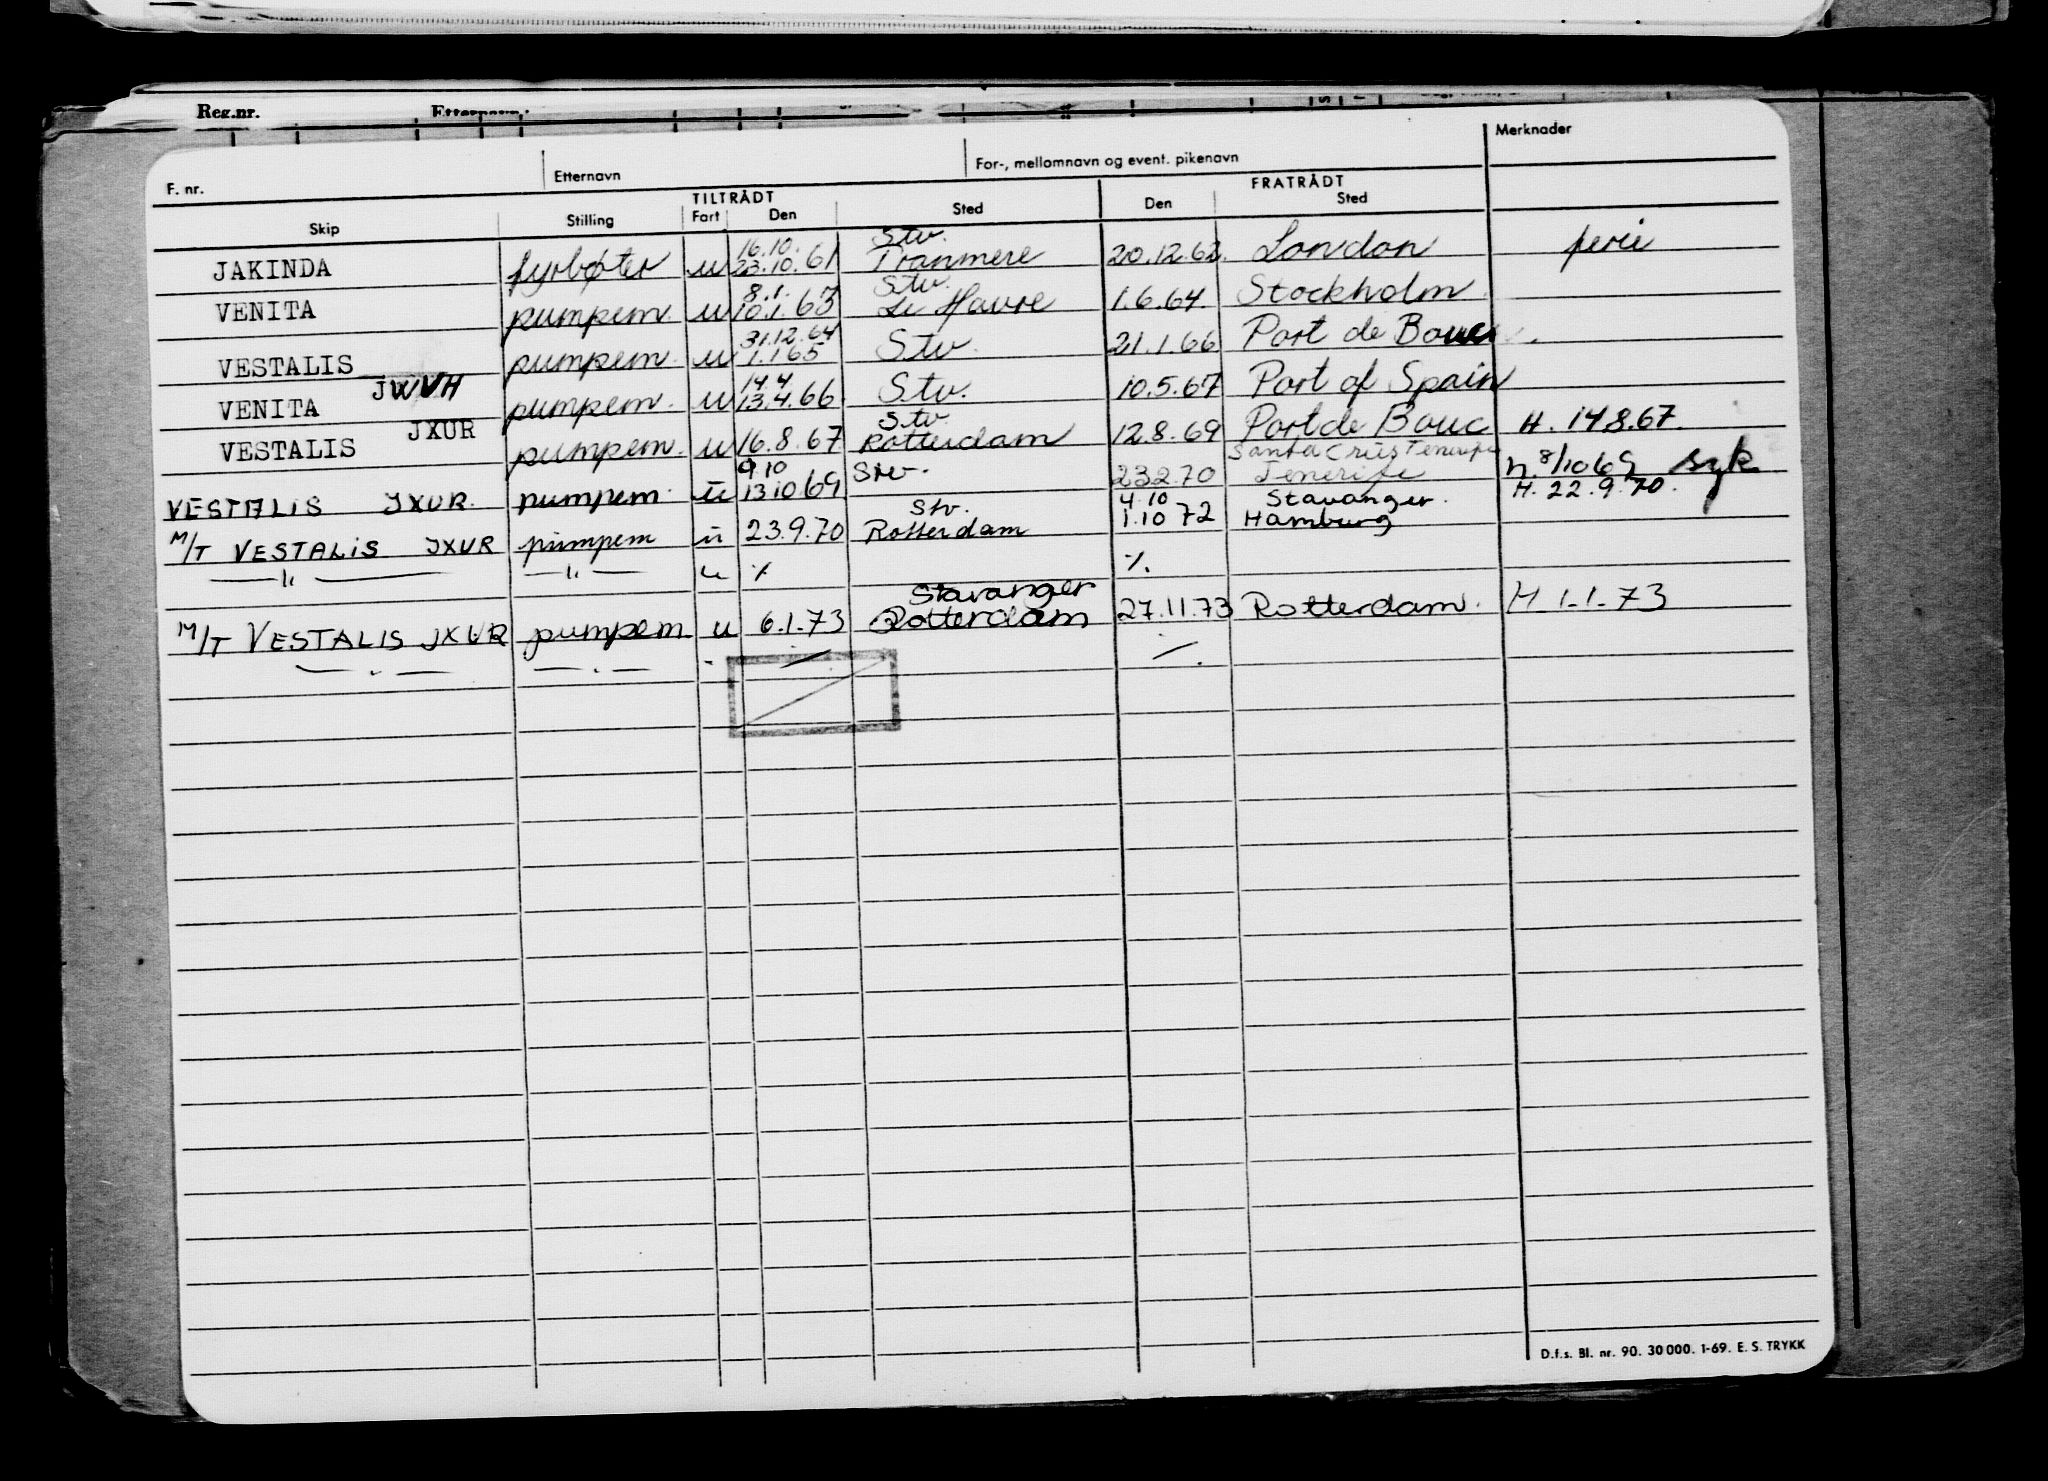 Reg.nr. Etternavn:
F. nr. Etternavn For-, mellomnavn og event. pikenavn Merknader
TILTRÅDT FRATRÅDT
Skip Stilling Fart Den Sted Den Sted
16.10. Stv.
JAKINDA fyrbøter u 23.10.61 Tranmere 20.12.62. London ferie
8.1. Stv.
VENITA pumpem u 10.1.63 Le Havre 1.6.64. Stockholm
31.12.64
VESTALIS pumpem. u 1.1.65 Stv. 21.1.66 Port de Bouc.
14.4
VENITA JWVH pumpem. u 13.4.66 Stv. 10.5.67 Port of Spain
Stv.
VESTALIS JXUR pumpem. u 16.8.67 Rotterdam 12.8.69 Port de Bouc H. 14.8.67.
9.10 Santa Crus Tenerife
VESTALIS JXUR. pumpem. u 13.10.69 Stv. 23.2.70 Tenerife h. 8/10 69 syk
Stv. 4.10 Stavanger. H. 22.9.70.
M/T VESTALIS JXUR pumpem u 23.9.70 Rotterdam 1.10 72 Hamburg
—"— —"— u % %
Stavanger
M/T VESTALIS JXUR pumpem u 6.1.73 Rotterdam 27.11.73 Rotterdam. H 1.1.73
D.f.s. Bl. nr. 90. 30 000. 1-69. E. S. TRYKK